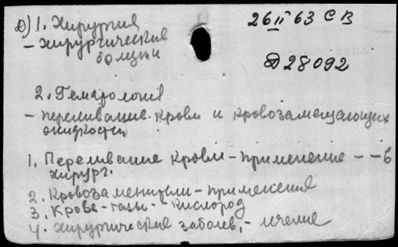 Д) 1. Хирургия
26 II 63 СВ
- хирургические
болезни
Д 28092
2. Гематология
- переливание крови и кровозамещающих
жидкостей
1. Переливание крови - применение - - в
хирург.
2. Кровозаменители - применение
3. Крове - газы - кислород
4. Хирургические заболев. - лечение